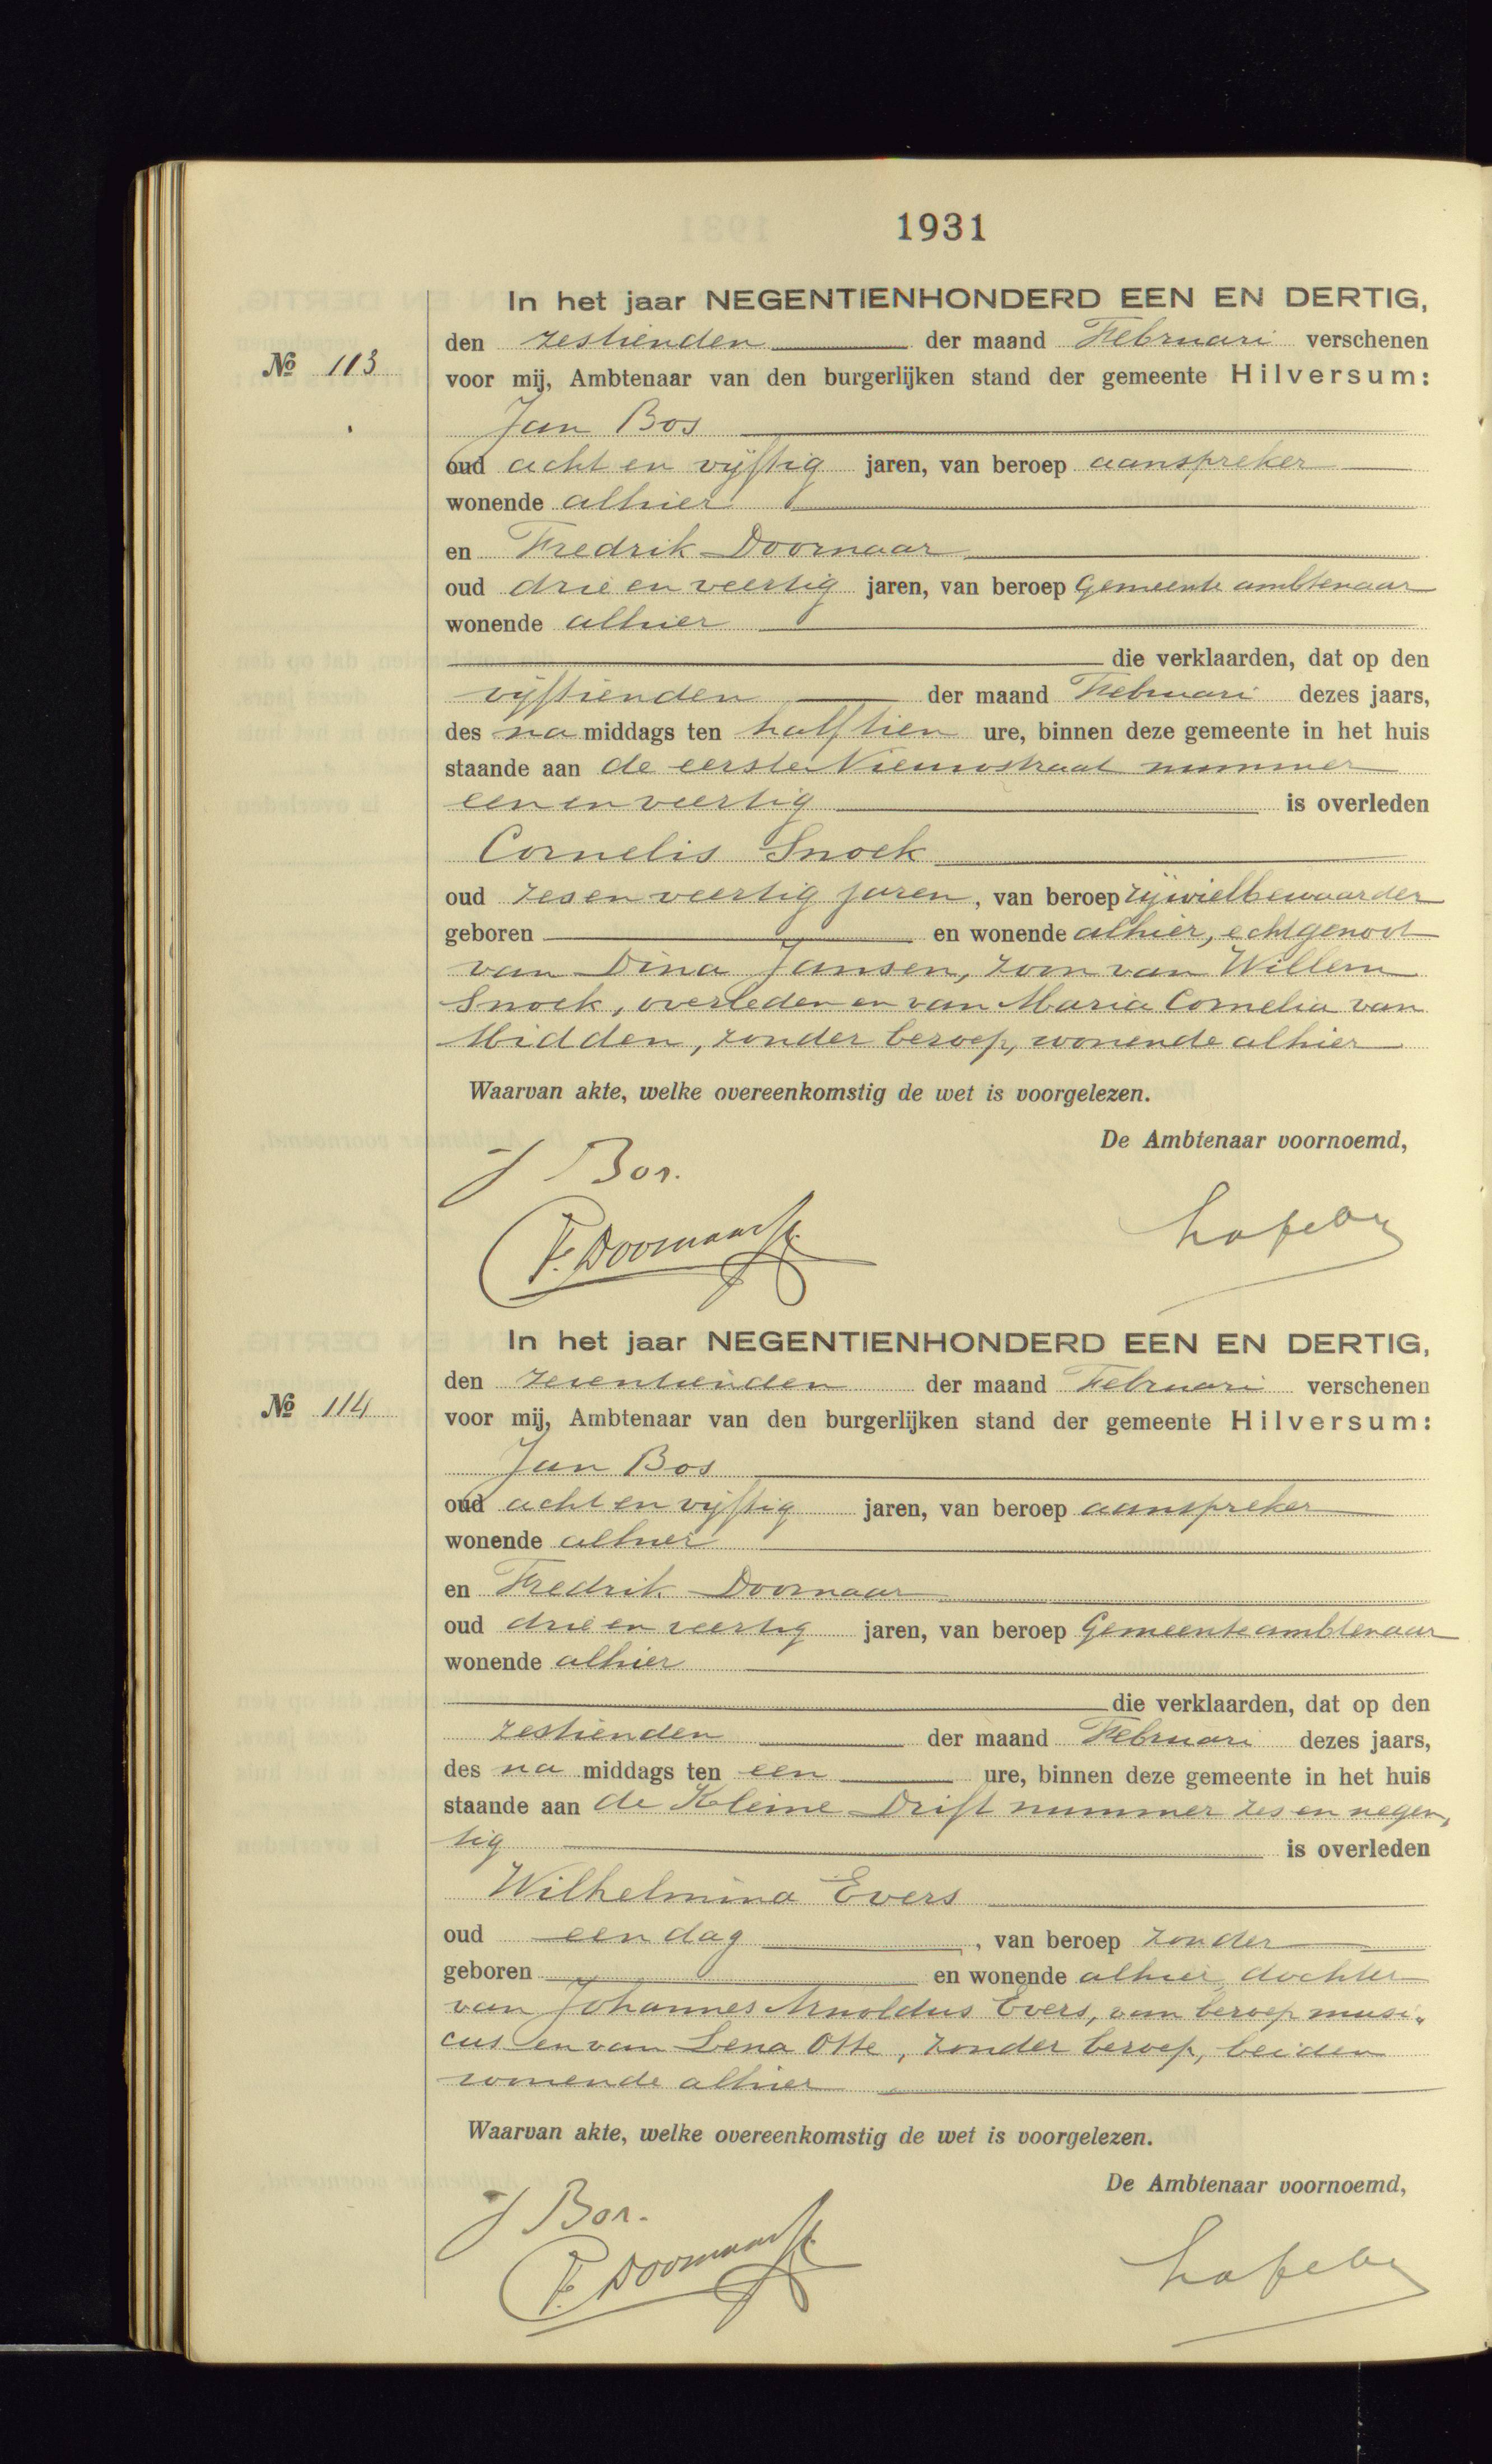 1931
In het jaar NEGENTIENHONDERD EEN EN DERTIG,
den zestienden der maand Februari verschenen
№ 113
voor mij, Ambtenaar van den burgerlijken stand der gemeente Hilversum:
Jan Bos
oud acht en vijftig jaren, van beroep aanspreker
wonende alhier
en Fredrik Doornaar
oud drie en veertig jaren, van beroep Gemeente ambtenaar
wonende alhier
die verklaarden, dat op den
vijftienden der maand Februari dezes jaars,
des na middags ten half tien ure, binnen deze gemeente in het huis
staande aan de eerste Nieuwstraat nummer
een en veertig is overleden
Cornelis Snoek
oud zes en veertig jaren, van beroep rijwielbewaarder
geboren en wonende alhier, echtgenoot
van Dina Jansen, zoon van Willem
Snoek, overleden en van Maria Cornelia van
Midden, zonder beroep, wonende alhier
Waarvan akte, welke overeenkomstig de wet is voorgelezen.
De Ambtenaar voornoemd,
J Bos.
F. Doornaar
In het jaar NEGENTIENHONDERD EEN EN DERTIG,
den zeventienden der maand Februari verschenen
№ 114
voor mij, Ambtenaar van den burgerlijken stand der gemeente Hilversum:
Jan Bos
oud acht en vijftig jaren, van beroep aanspreker
wonende alhier
en Fredrik Doornaar
oud drie en veertig jaren, van beroep Gemeente ambtenaar
wonende alhier
die verklaarden, dat op den
zestienden der maand Februari dezes jaars,
des na middags ten een ure, binnen deze gemeente in het huis
staande aan de Kleine Drift nummer zes en negen„
tig is overleden
Wilhelmina Evers
oud een dag, van beroep zonder
geboren en wonende alhier, dochter
van Johannes Arnoldus Evers, van beroep musi„
cus en van Lena Otte, zonder beroep, beiden
wonende alhier
Waarvan akte, welke overeenkomstig de wet is voorgelezen.
De Ambtenaar voornoemd,
J Bos.
F. Doornaar